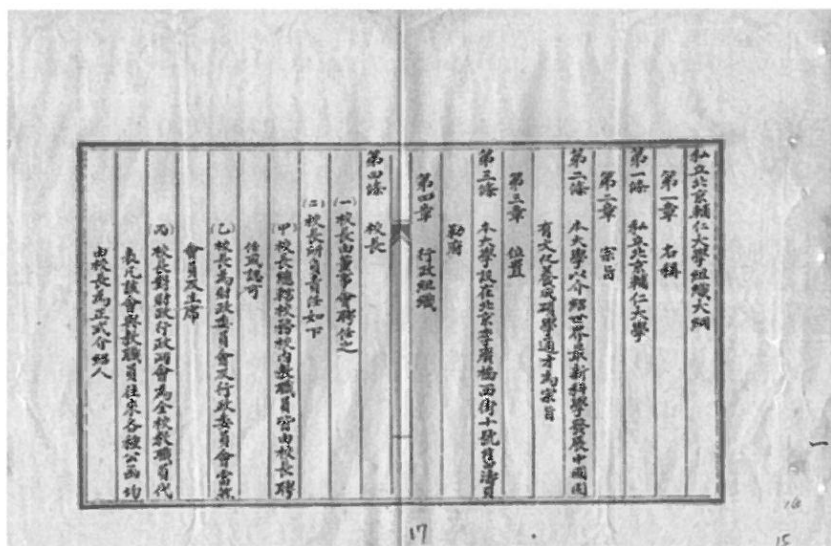 私立北京輔仁大學組織大綱
第一章 名稱
第一條 私立北京輔仁大學
第二章 宗旨
第二條 本大學以介紹世界最新科學發展中國固
有文化養成碩學通才為宗旨
第三章 位置
第三條 本大學設在北京李廣橋西街十號舊濤貝
勒府
第四章 行政組織
第四條 校長
(一)校長由董事會聘任之
(二)校長所負責任如下
(甲)校長總轄校務校內教職員皆由校長聘
任或認可
(乙)校長為財政委員會及行政委員會當然
會員及主席
(丙)校長對財政行政兩會為全校教職員代
表凡該會與教職員往來各種公函均
由校長為正式介紹人
一
17
16
15